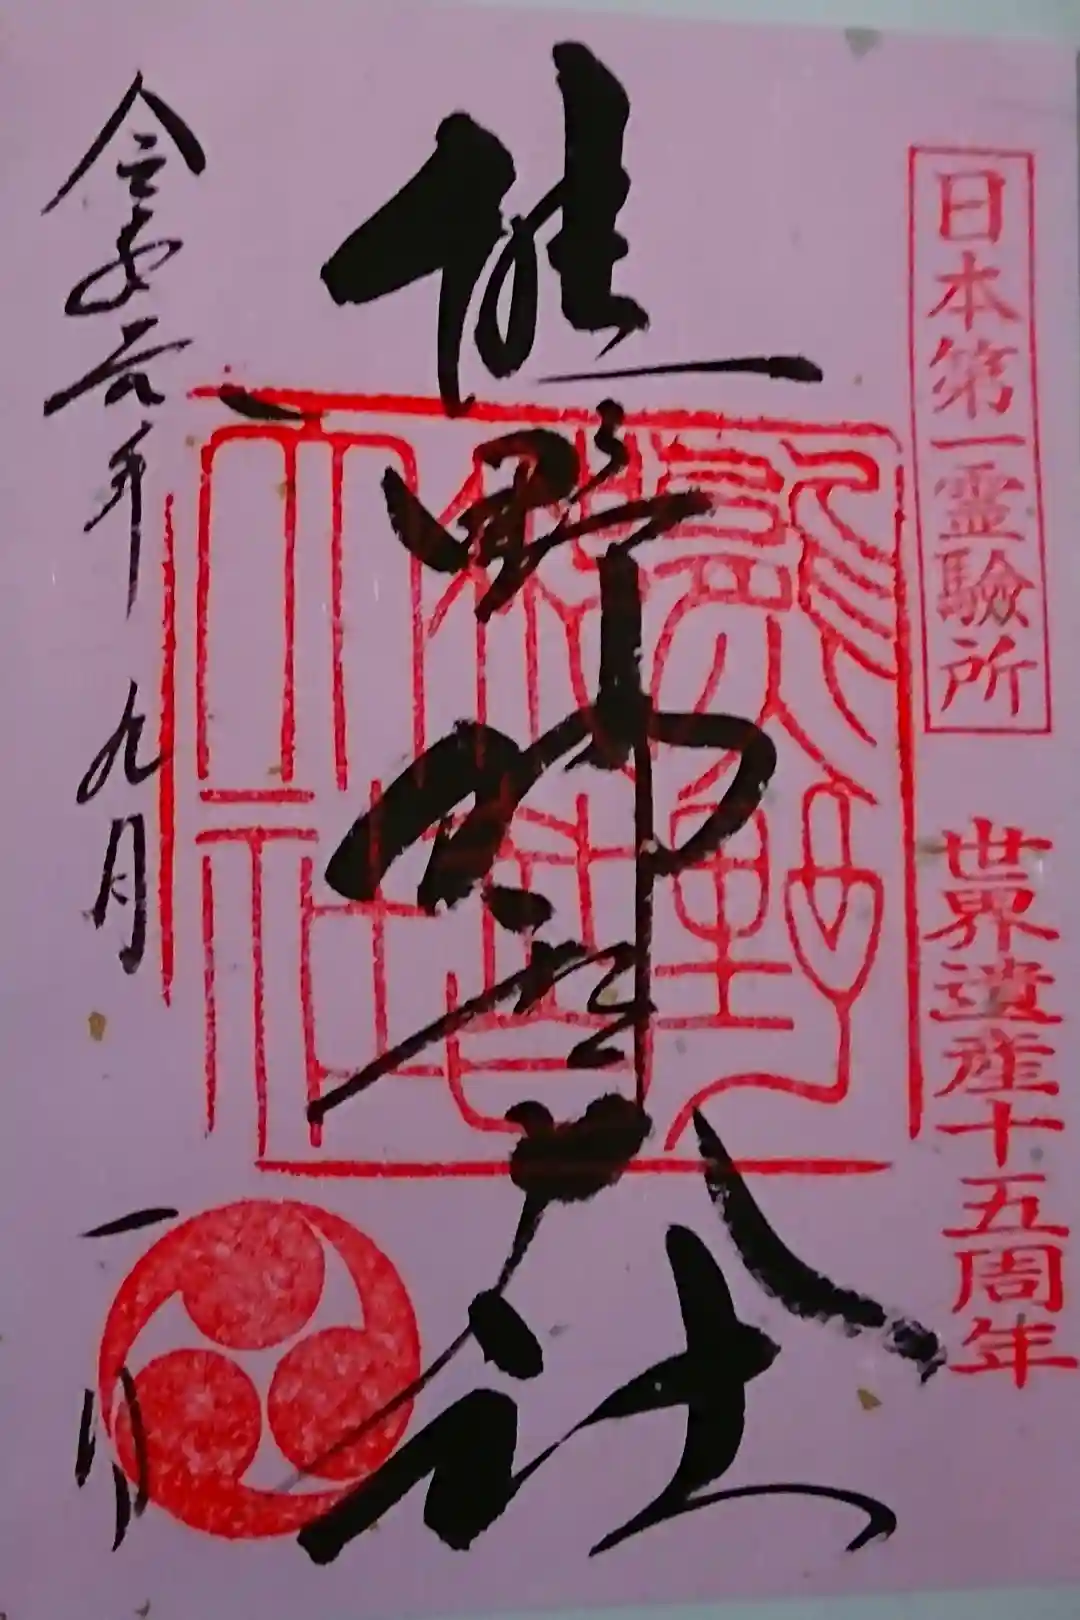 日本第一霊験所
世界遺産十五周年
熊野那智大社
熊野那智大社
令和元年 九月 一日